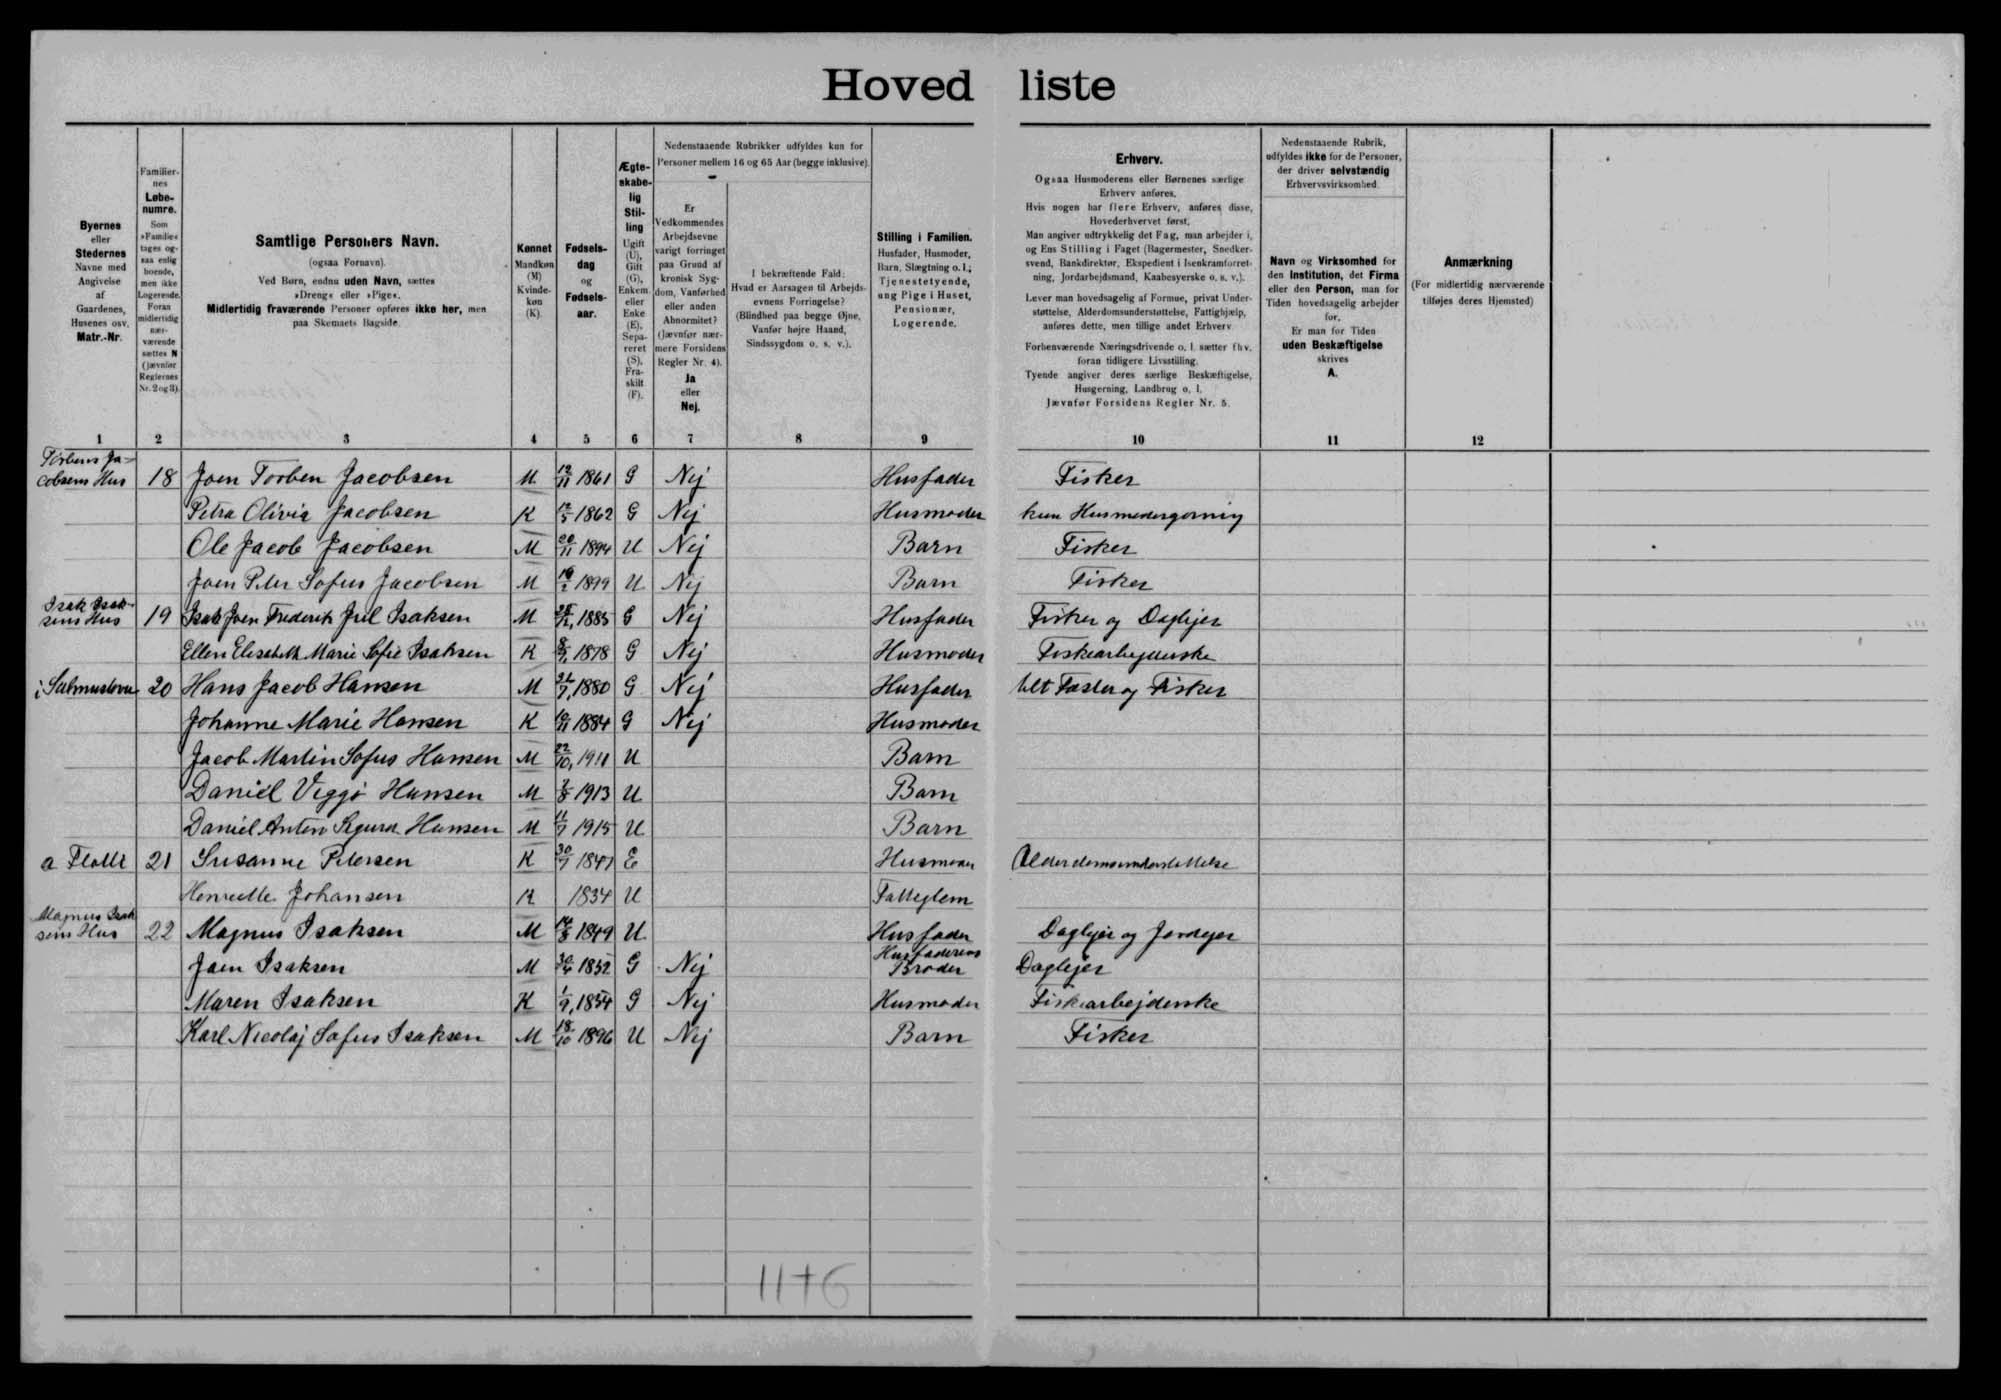 Hoved liste
Byernes
eller
Stedernes
Navne med
Angivelse
af
Gaardenes,
Husenes osv.
Matr.-Nr.
Familier-
nes
Løbe-
numre.
Som
»Familie«
tages og-
saa enlig
boende,
men ikke
Logerende.
Foran
midlertidig
nær-
værende
sættes N
(jævnfør
Reglernes
Nr. 2 og 3).
Samtlige Personers Navn.
(ogsaa Fornavn).
Ved Børn, endnu uden Navn, sættes
»Dreng« eller »Pige«.
Midlertidig fraværende Personer opføres ikke her, men
paa Skemaets Bagside.
Kønnet
Mandkøn
(M)
Kvinde-
køn
(K).
Fødsels-
dag
og
Fødsels-
aar.
Ægte-
skabe-
lig
Stil-
ling
Ugift
(U),
Gift
(G),
Enkem.
eller
Enke
(E),
Sepa-
reret
(S),
Fra-
skilt
(F).
Nedenstaaende Rubrikker udfyldes kun for
Personer mellem 16 og 65 Aar (begge inklusive).
Er
Vedkommendes
Arbejdsevne
varigt forringet
paa Grund af
kronisk Syg-
dom, Vanførhed
eller anden
Abnormitet?
(Jævnfør nær-
mere Forsidens
Regler Nr. 4).
Ja
eller
Nej.
I bekræftende Fald:
Hvad er Aarsagen til Arbejds-
evnens Forringelse?
(Blindhed paa begge Øjne,
Vanfør højre Haand,
Sindssygdom o. s. v.).
Stilling i Familien.
Husfader, Husmoder,
Barn, Slægtning o. l.;
Tjenestetyende,
ung Pige i Huset,
Pensionær,
Logerende.
Erhverv.
Ogsaa Husmoderens eller Børnenes særlige
Erhverv anføres.
Hvis nogen har flere Erhverv, anføres disse,
Hovederhvervet først.
Man angiver udtrykkelig det Fag, man arbejder i,
og Ens Stilling i Faget (Bagermester, Snedker-
svend, Bankdirektør, Ekspedient i Isenkramforret-
ning, Jordarbejdsmand, Kaabesyerske o. s. v.).
Lever man hovedsagelig af Formue, privat Under-
støttelse, Alderdomsunderstøttelse, Fattighjælp,
anføres dette, men tillige andet Erhverv
Forhenværende Næringsdrivende o. l. sætter fhv.
foran tidligere Livsstilling.
Tyende angiver deres særlige Beskæftigelse,
Husgerning, Landbrug o. l.
Jævnfør Forsidens Regler Nr. 5.
Nedenstaaende Rubrik,
udfyldes ikke for de Personer,
der driver selvstændig
Erhvervsvirksomhed.
Navn og Virksomhed for
den Institution, det Firma
eller den Person, man for
Tiden hovedsagelig arbejder
for.
Er man for Tiden
uden Beskæftigelse
skrives
A.
Anmærkning
(For midlertidig nærværende
tilføjes deres Hjemsted)
1 2 3 4 5 6 7 8 9 10 11 12
Torbens Ja-
cobsens Hus 18 Joen Torben Jacobsen M 19/11 1861 G Nej Husfader Fisker
Petra Olivia Jacobsen K 12/5 1862 G Nej Husmoder kun Husmodergerning
Ole Jacob Jacobsen M 20/11 1894 U Nej Barn Fisker
Joen Peter Sofus Jacobsen M 1899 U Nej Barn Fisker
Isak Isak-
sens Hus 19 Isak Joen Frederik Juel Isaksen M 1885 G Nej Husfader Fisker og Daglejer
Ellen Elisabeth Marie Sofie Isaksen K 1878 G Nej Husmoder Fiskearbejderske
i 20 Hans Jacob Hansen M 1880 G Nej Husfader Fæster og Fisker
Johanne Marie Hansen K 1884 G Nej Husmoder
Jacob Martin Sofus Hansen M 22/10 1911 U Barn
Daniel Viggo Hansen M 1913 U Barn
Daniel Anton Sigurd Hansen M 11/7 1915 U Barn
a Flotti 21 Susanne Petersen K 30/7 1841 E Husmoder Alderdomsunderstøttelse
Henriette Johansen K 1834 U Fattiglem
Magnus Isak
sens Hus 22 Magnus Isaksen M 14/8 1849 U Husfader Daglejer og Jordejer
Husfaderens
Joen Isaksen M 30/4 1852 G Nej Broder Daglejer
Maren Isaksen K 1/9 1854 G Nej Husmoder Fiskearbejderske
Karl Nicolaj Sofus Isaksen M 18/10 1896 U Nej Barn Fisker
11+6